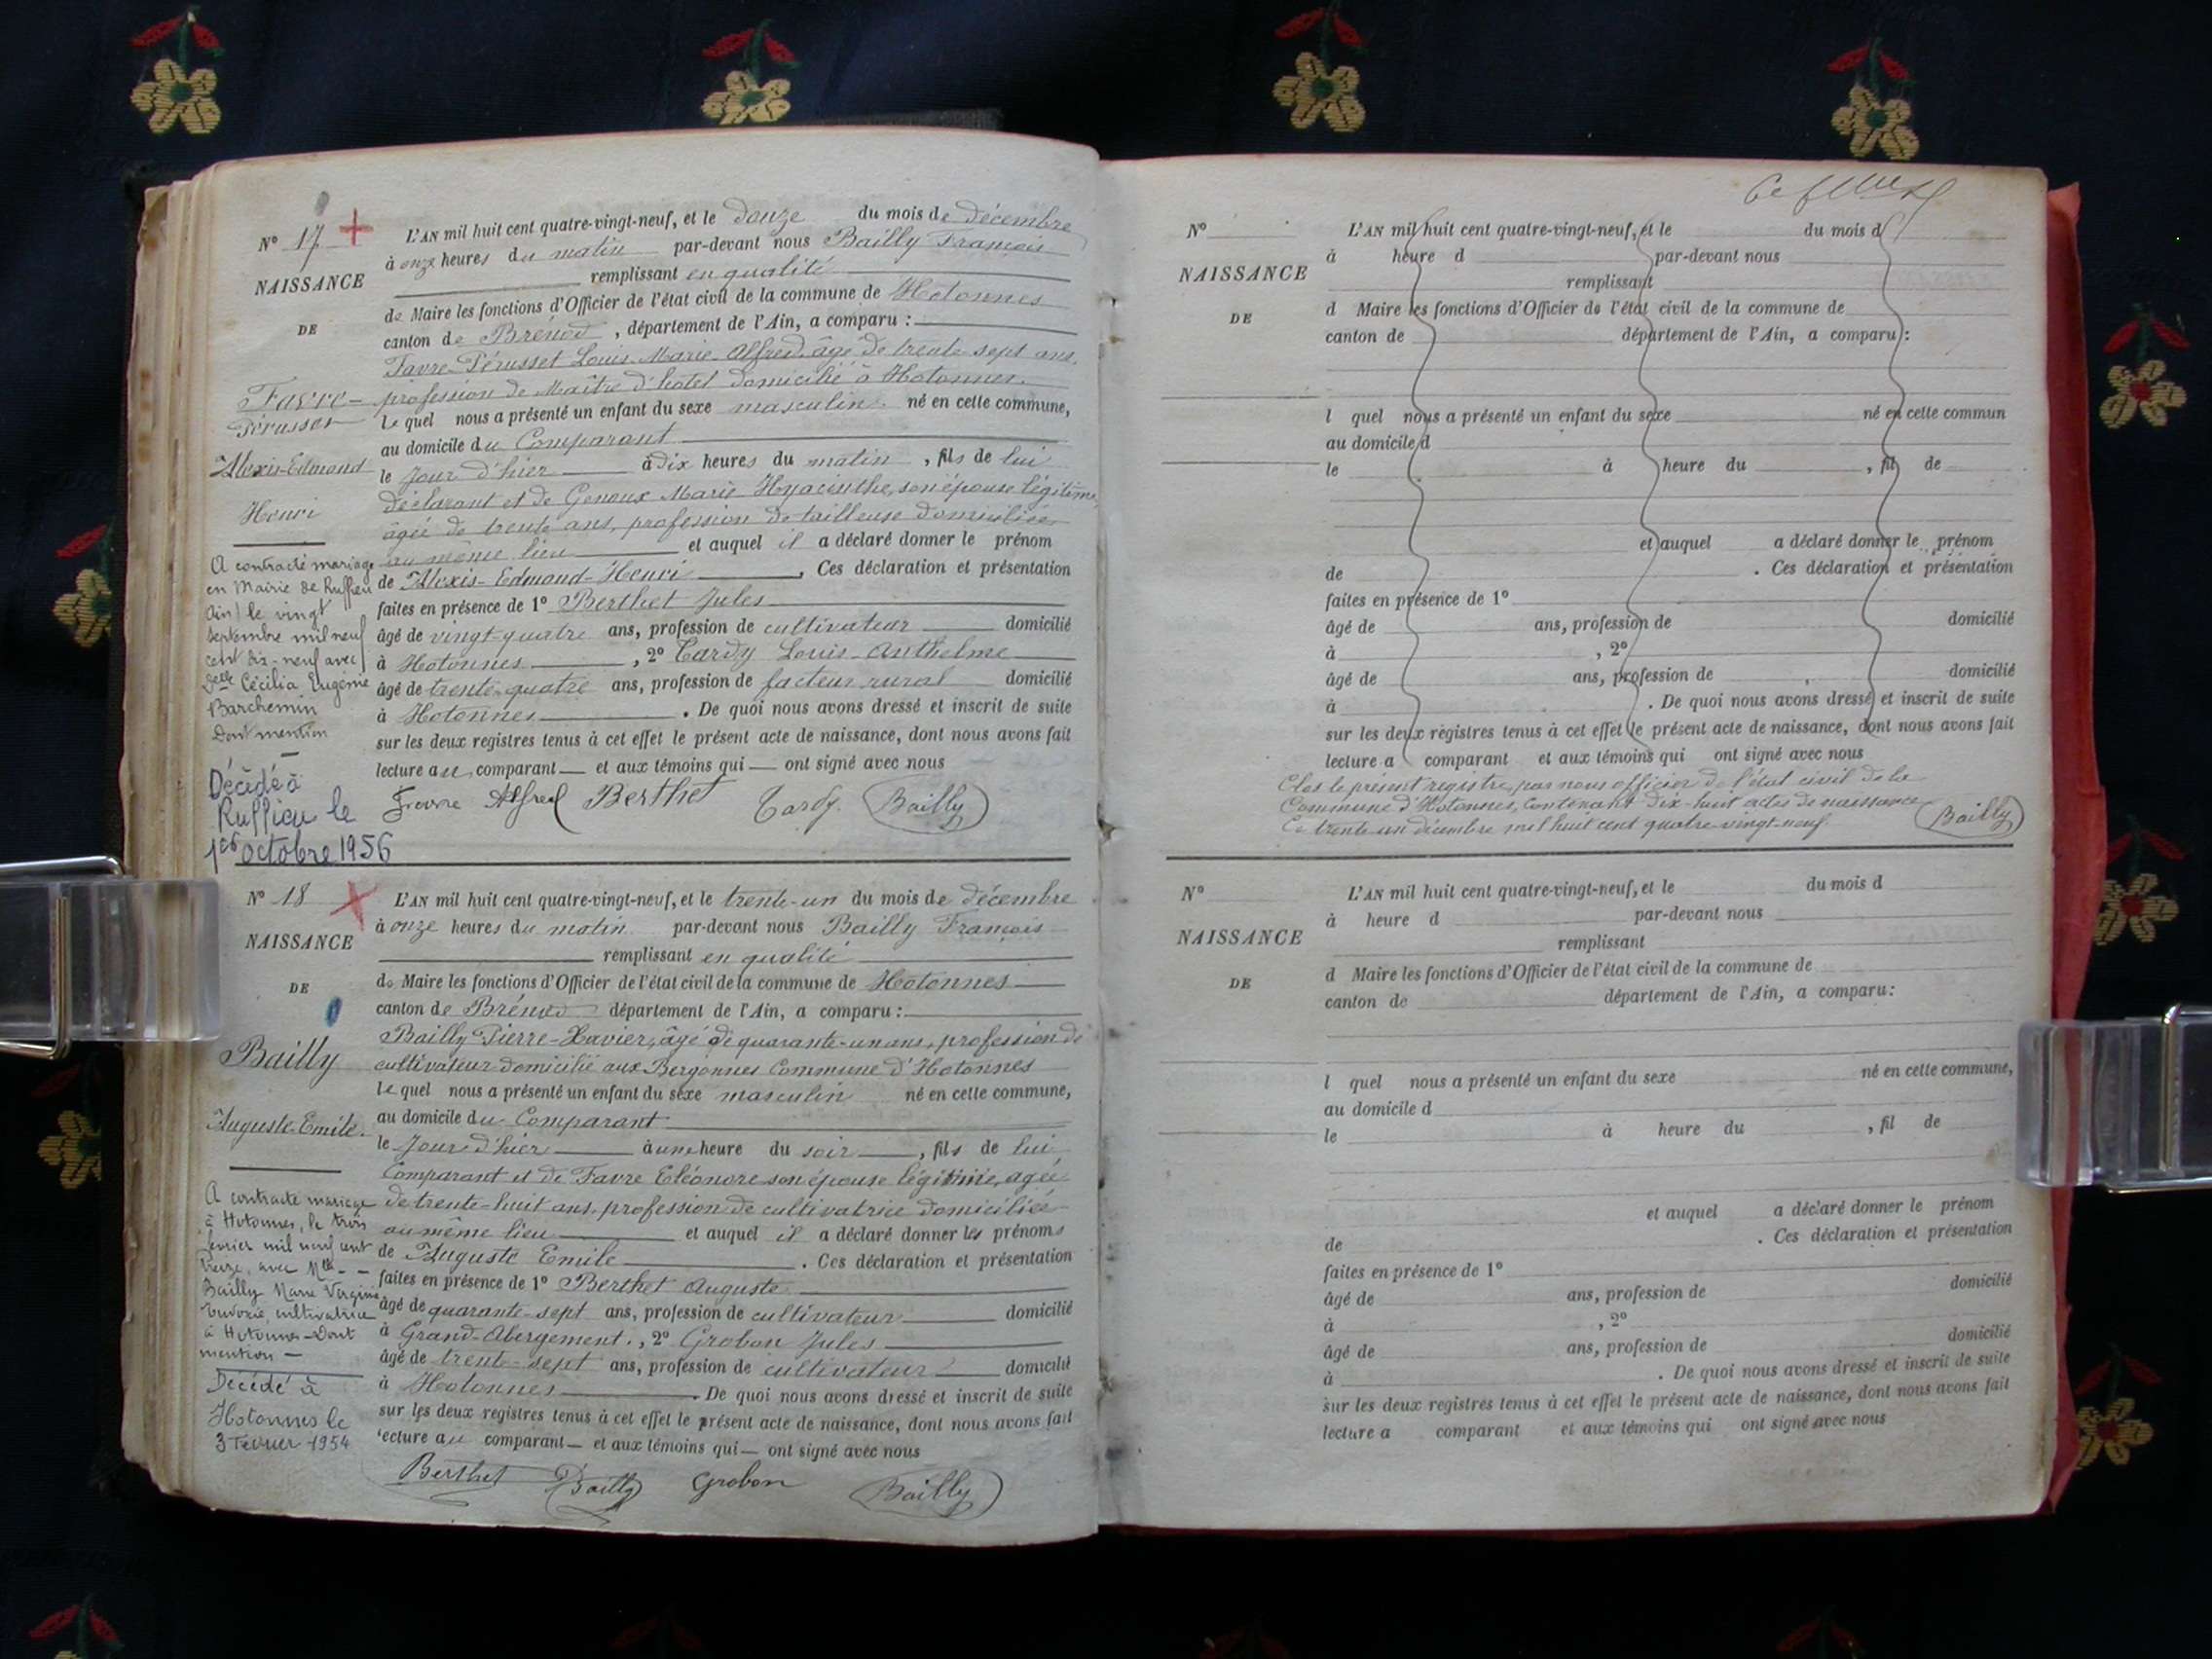 N° 17
NAISSANCE
DE
Favre-
Pérusset
Alexis-Edmond
Henri
A contracté mariage
en Mairie de Ruffieu
Ain) le vingt
septembre mil neuf
cent dix-neuf avec
Delle Cécilia Eugénie
Barchemin
Dont mention
Décédé à
Ruffieu le
1er octobre 1956
L'AN mil huit cent quatre-vingt-neuf, et le douze du mois de décembre
à onze heures du matin par-devant nous Bailly François
remplissant en qualité
de Maire les fonctions d'Officier de l'état civil de la commune de Hotonnes
canton de Brénod, département de l'Ain, a comparu :
Favre-Pérusset Louis-Marie-Alfred, âgé de trente-sept ans,
profession de Maître d'hôtel domicilié à Hotonnes.
Le quel nous a présenté un enfant du sexe masculin né en cette commune,
au domicile du Comparant
le Jour d'hier à dix heures du matin, fils de lui
déclarant et de Genoux Marie Hyacinthe, son épouse légitime,
âgée de trente ans, profession de tailleuse domiciliée
au même lieu et auquel il a déclaré donner le prénom
de Alexis-Edmond-Henri. Ces déclaration et présentation
faites en présence de 1° Berthet Jules
âgé de vingt-quatre ans, profession de cultivateur domicilié
à Hotonnes, 2° Tardy Louis-Anthelme
âgé de trente-quatre ans, profession de facteur rural domicilié
à Hotonnes. De quoi nous avons dressé et inscrit de suite
sur les deux registres tenus à cet effet le présent acte de naissance, dont nous avons fait
lecture au comparant et aux témoins qui ont signé avec nous
Favre Alfred Berthet Tardy Bailly
N° 18
NAISSANCE
DE
Bailly
Auguste-Emile.
A contracté mariage
à Hotonnes, le trois
février mil neuf cent
treize, avec Mlle
Bailly Marie Virginie
cultivatrice
à Hotonnes-Dont
mention
Décédé à
Hotonnes le
3 Février 1954
L'AN mil huit cent quatre-vingt-neuf, et le trente-un du mois de décembre
à onze heures du matin par-devant nous Bailly François
remplissant en qualité
de Maire les fonctions d'Officier de l'état civil de la commune de Hotonnes
canton de Brénod département de l'Ain, a comparu :
Bailly Pierre-Xavier, âgé de quarante-un ans, profession de
cultivateur domicilié aux Bergonnes Commune d'Hotonnes
Le quel nous a présenté un enfant du sexe masculin né en cette commune,
au domicile du Comparant
le Jour d'hier à une heure du soir, fils de lui
Comparant et de Favre Eléonore son épouse légitime, agée
de trente-huit ans, profession de cultivatrice domiciliée
au même lieu et auquel il a déclaré donner les prénoms
de Auguste Emile. Ces déclaration et présentation
faites en présence de 1° Berthet Auguste
âgé de quarante-sept ans, profession de cultivateur domicilié
à Grand-Abergement., 2° Grobon Jules
âgé de trente-sept ans, profession de cultivateur domicilié
à Hotonnes. De quoi nous avons dressé et inscrit de suite
sur les deux registres tenus à cet effet le présent acte de naissance, dont nous avons fait
lecture au comparant et aux témoins qui ont signé avec nous
Berthet Bailly Grobon Bailly
N°
NAISSANCE
DE
L'AN mil huit cent quatre-vingt-neuf, et le du mois d
à heure d par-devant nous
remplissant
d Maire les fonctions d'Officier de l'état civil de la commune de
canton de département de l'Ain, a comparu :
l quel nous a présenté un enfant du sexe né en cette commun
au domicile d
le à heure du , fil de
et auquel a déclaré donner le prénom
de . Ces déclaration et présentation
faites en présence de 1°
âgé de ans, profession de domicilié
à , 2°
âgé de ans, profession de domicilié
à . De quoi nous avons dressé et inscrit de suite
sur les deux registres tenus à cet effet le présent acte de naissance, dont nous avons fait
lecture a comparant et aux témoins qui ont signé avec nous
Clos le présent registre, par nous officier de l'état civil de la
Commune d'Hotonnes, contenant dix-huit actes de naissance
Le trente-un décembre mil huit cent quatre-vingt-neuf. Bailly
N°
NAISSANCE
DE
L'AN mil huit cent quatre-vingt-neuf, et le du mois d
à heure d par-devant nous
remplissant
d Maire les fonctions d'Officier de l'état civil de la commune de
canton de département de l'Ain, a comparu:
l quel nous a présenté un enfant du sexe né en cette commune,
au domicile d
le à heure du , fil de
et auquel a déclaré donner le prénom
de . Ces déclaration et présentation
faites en présence de 1°
âgé de ans, profession de domicilié
à , 2°
âgé de ans, profession de domicilié
à . De quoi nous avons dressé et inscrit de suite
sur les deux registres tenus à cet effet le présent acte de naissance, dont nous avons fait
lecture a comparant et aux témoins qui ont signé avec nous